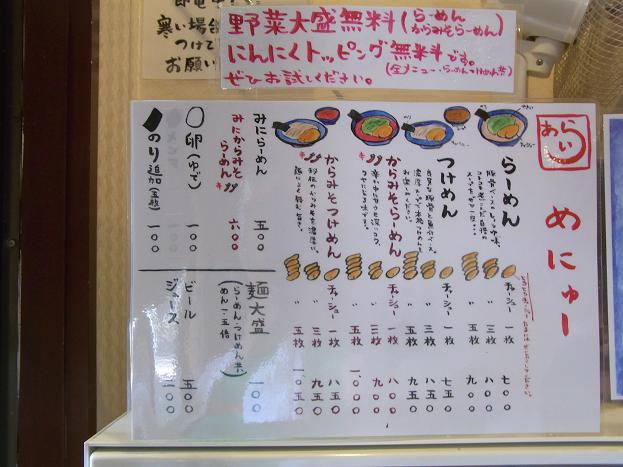 寒い場
つけて
お願い
野菜大盛無料(らーめん
からみそらーめん)
にんにくトッピング無料です。
(全メニュー・らーめんつけめん共)
ぜひお試しください。
あらい
めにゅー
らーめん
チャーシュー 一枚 七〇〇
〃 三枚 八〇〇
〃 五枚 九〇〇
つけめん
チャーシュー 一枚 七五〇
〃 三枚 八五〇
〃 五枚 九五〇
からみそらーめん
チャーシュー 一枚 八〇〇
〃 三枚 九〇〇
〃 五枚 一、〇〇〇
からみそつけめん
チャーシュー 一枚 八五〇
〃 三枚 九五〇
〃 五枚 一、〇五〇
みにらーめん 五〇〇
みにからみそ
らーめん 六〇〇
卵(ゆで) 一〇〇
のり追加(五枚) 一〇〇
麺大盛 一〇〇
(らーめん・つけめん共
めん一・五倍)
ビール 五〇〇
ジュース 一〇〇